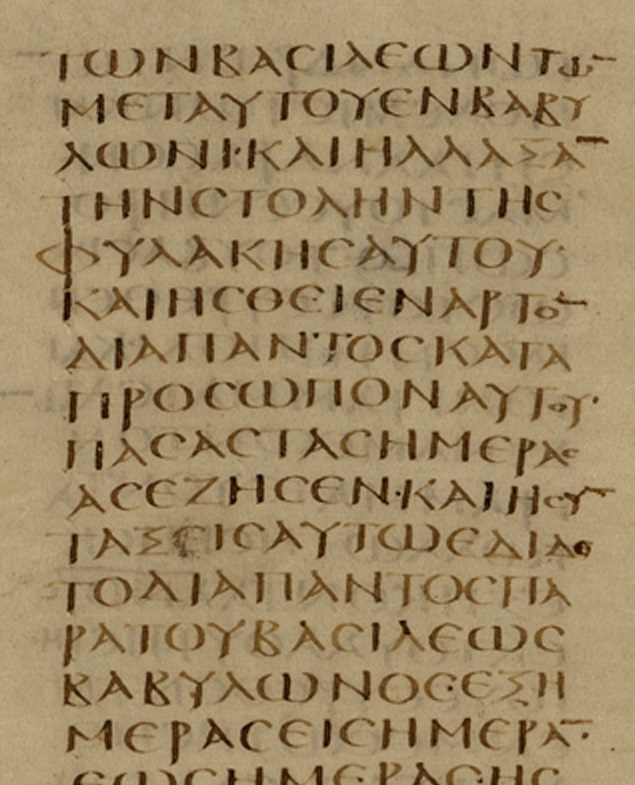 ΤΩΝΒΑϹΙΛΕΩΝΤΩ̅
ΜΕΤΑΥΤΟΥΕΝΒΑΒΥ
ΛΩΝΙ·ΚΑΙΗΛΛΑΞΑ̅
ΤΗΝϹΤΟΛΗΝΤΗϹ
ΦΥΛΑΚΗϹΑΥΤΟΥ·
ΚΑΙΗϹΘΕΙΕΝΑΡΤΟ̅
ΔΙΑΠΑΝΤΟϹΚΑΤΑ
ΠΡΟϹΩΠΟΝΑΥΤΟΥ·
ΠΑϹΑϹΤΑϹΗΜΕΡΑϹ
ΑϹΕΖΗϹΕΝ·ΚΑΙΗϹΥ̅
ΤΑΞΕΙϹΑΥΤΩΕΔΙΔΟ
ΤΟΔΙΑΠΑΝΤΟϹΠΑ
ΡΑΤΟΥΒΑϹΙΛΕΩϹ
ΒΑΒΥΛΩΝΟϹ·ΕΞΗ
ΜΕΡΑϹΕΙϹΗΜΕΡΑ̅·
ΕΩϹΗΜΕΡΑϹ·ΗϹ